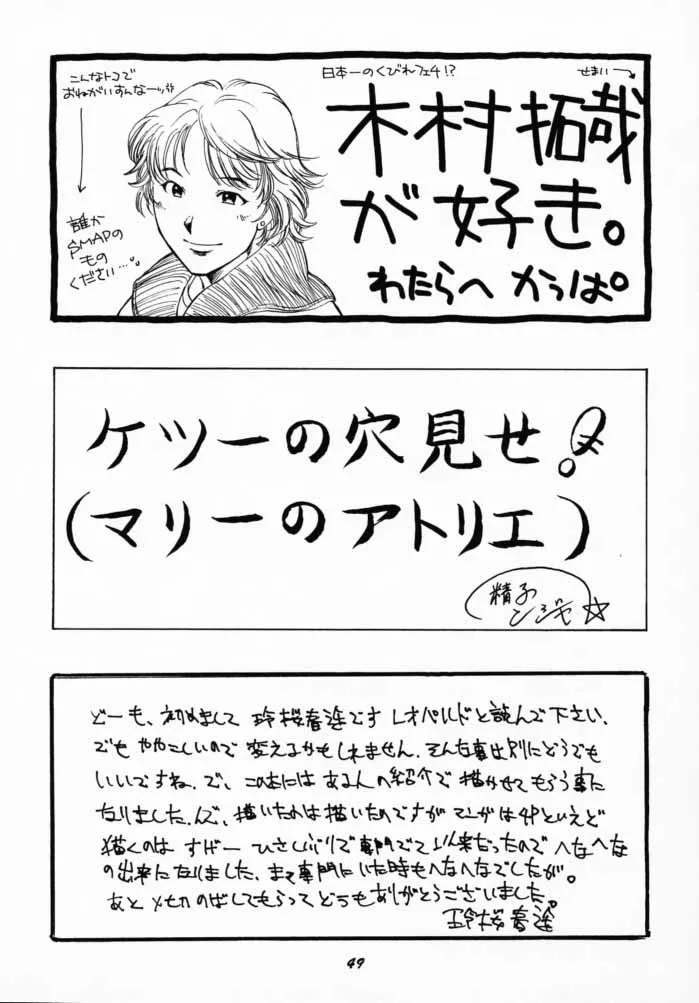 こんなトコで
おねがいすんなーッ!!
誰か
SMAPの
もの
ください…
日本一のくびれフェチ!?
せまい→
木村拓哉
が好き。
わたらへ かっぱ。
ケツーの穴見せ!
(マリーのアトリエ)
精子
ンジャ☆
どーも、初めまして 玲桜春途です レオパルドと読んで下さい、
でも ややこしいので 変えるかもしれません、そんな事は別にどうでも
いいですね、で、この本には ある人の紹介で 描かせて もらう事に
なりました、んで、描いたのは描いたのですが マンガは4Pといえど
描くのは すげー ひさしぶりで専門でて以来だったので へなへな
の出来になりました、まぁ専門にいた時もへなへなでしたが。
あと〆切のばしてもらって どうもありがとうございました。
玲桜春途
49